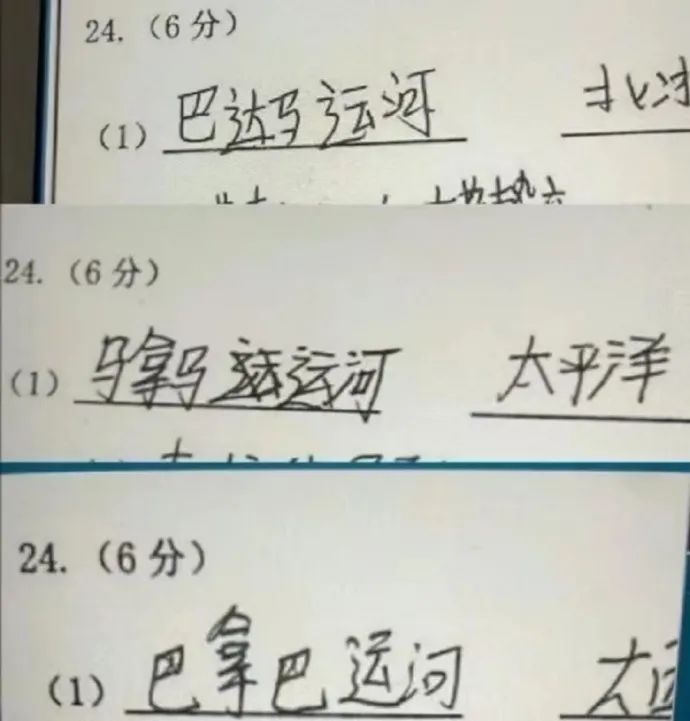 24.（6分）
(1) 巴达马运河 北
24.（6分）
(1) 马拿马运河 太平洋
24.（6分）
(1) 巴拿巴运河